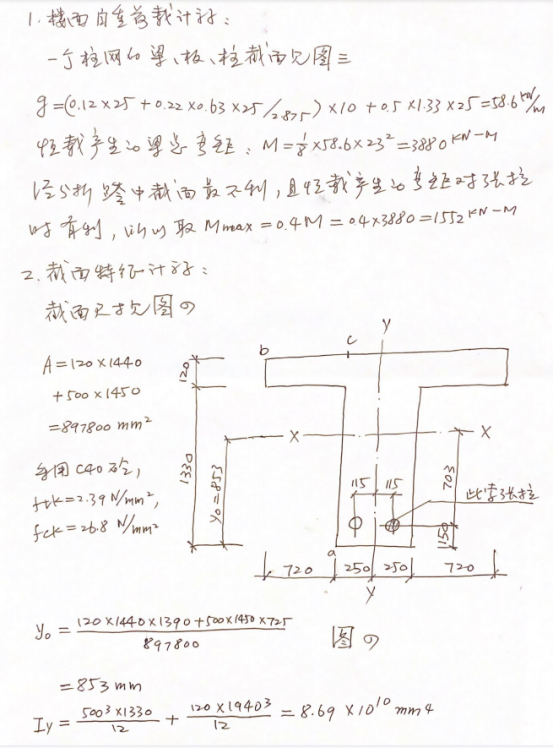 1. 楼面自重荷载计祘:
一个柱网的梁、板、柱截面见图三
g=(0.12×25+0.22×0.63×25/2.875)×10+0.5×1.33×25=58.6kN/m
恒载产生的梁总弯矩: M=1/8×58.6×23²=3880 KN-M
经分折跨中截面最不利,且恒载产生的弯矩对张拉
时有利,所以取 Mmax=0.4M=0.4×3880=1552 KN-M
2. 截面特征计祘:
截面尺寸见图四
A=120×1440
+500×1450
=897800 mm²
采用 C40 砼,
ftk=2.39 N/mm²,
fck=26.8 N/mm²
y
b
c
120
1330
y₀=853
X
X
115
115
703
此束张拉
150
a
720
250
250
720
y
图四
y₀ = (120×1440×1390+500×1450×725)/897800
=853 mm
Iy = 500³×1330/12 + 120×1940³/12 = 8.69×10¹⁰ mm4